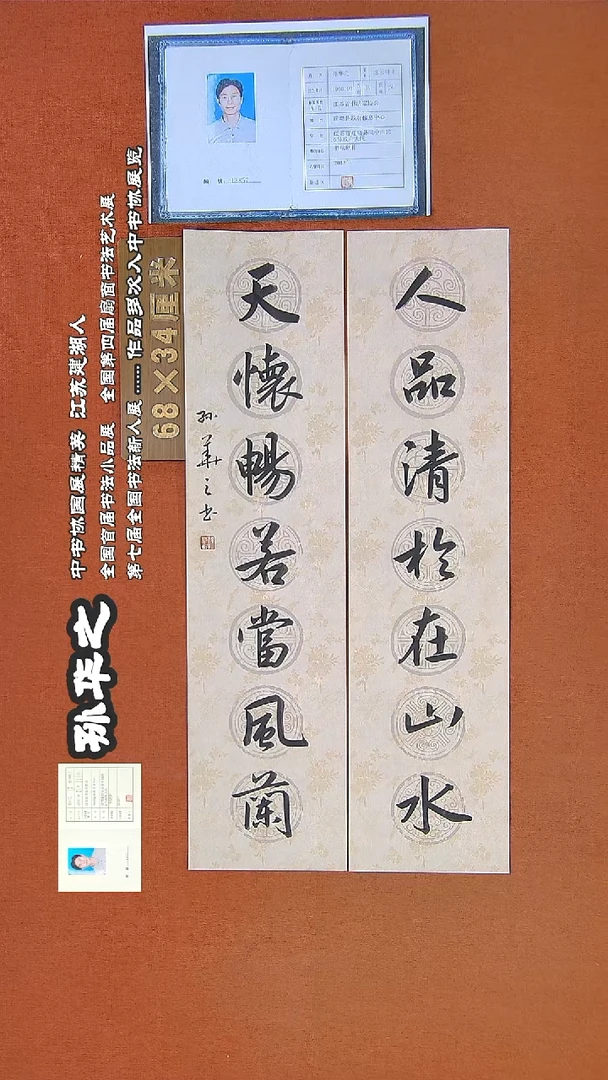 人品清於在山水
天懷暢若當風蘭
孙華之书
68×34厘米
孙华之
中书协国展精英 江苏建湖人
全国首届书法小品展 全国第四届扇面书法艺术展
第七届全国书法新人展……作品多次入中书协展览